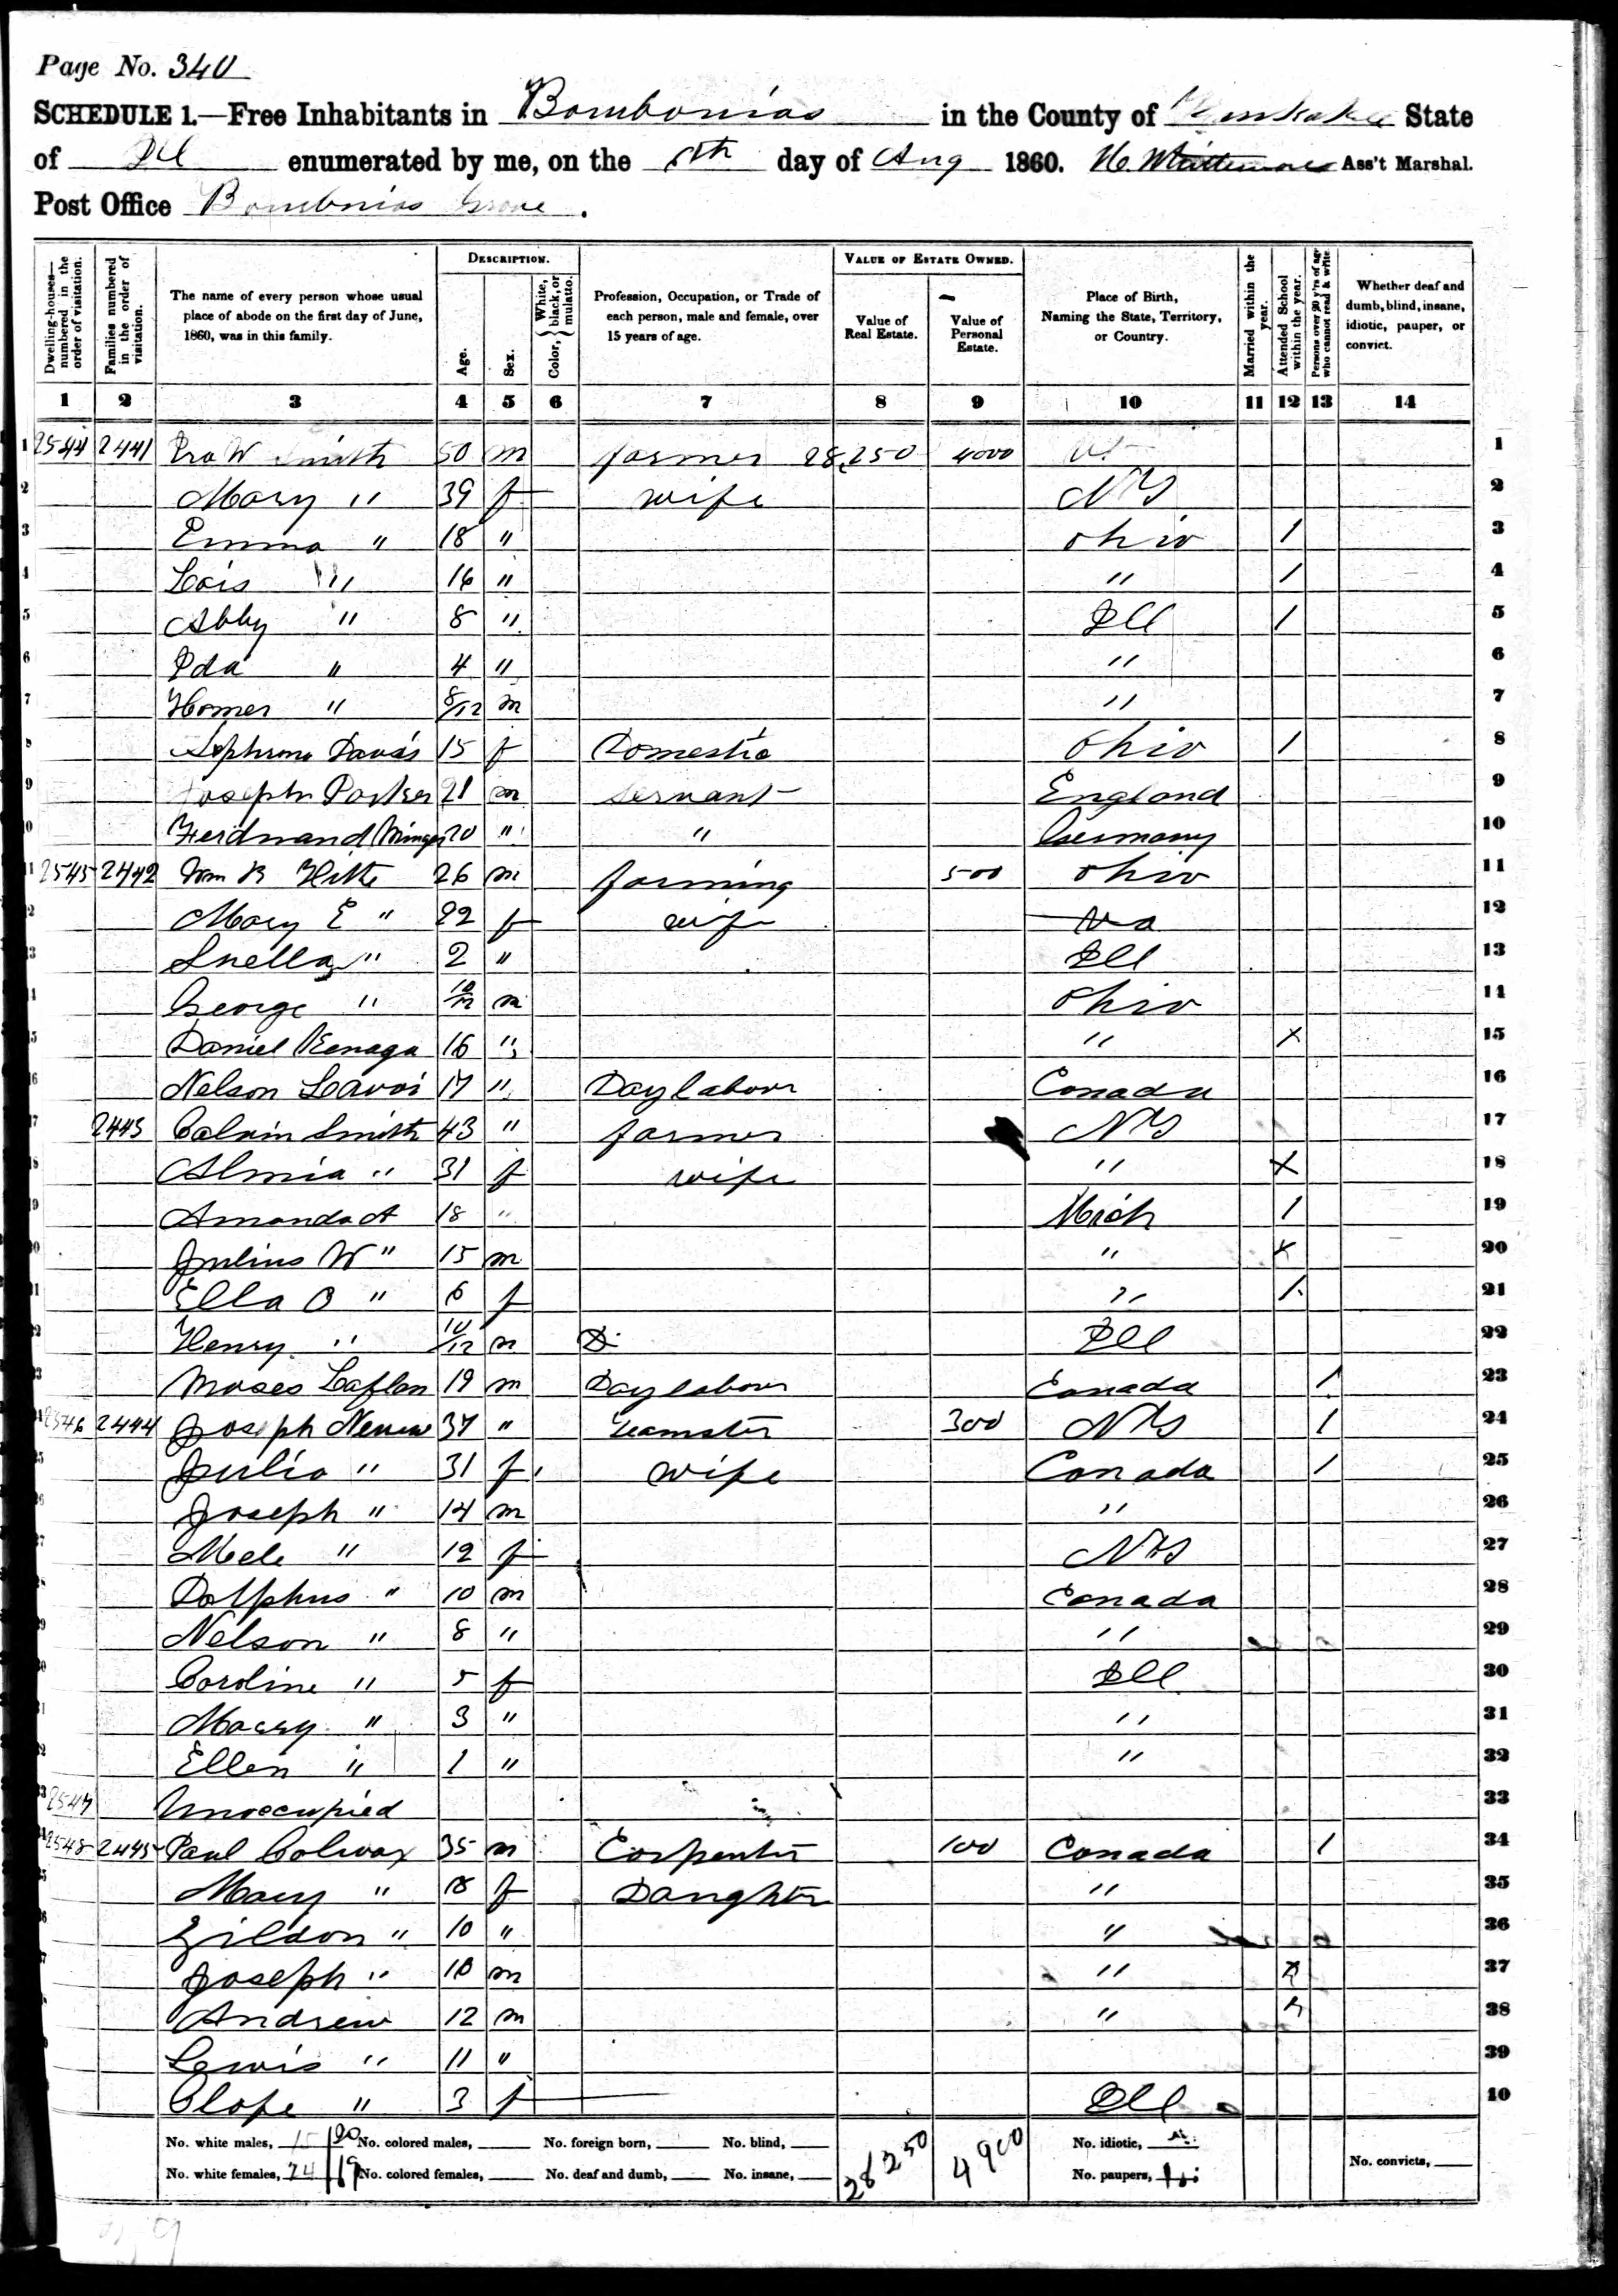 Page No. 340
SCHEDULE 1.—Free Inhabitants in Bourbonias in the County of Kankakee State
of Ill enumerated by me, on the 8th day of Aug 1860. Ass't Marshal.
Post Office Bourbonias Grove.
Dwelling-houses—numbered in the order of visitation. Families numbered in the order of visitation. The name of every person whose usual place of abode on the first day of June, 1860, was in this family. DESCRIPTION. Age. Sex. Color, White, black, or mulatto. Profession, Occupation, or Trade of each person, male and female, over 15 years of age. VALUE OF ESTATE OWNED. Value of Real Estate. Value of Personal Estate. Place of Birth, Naming the State, Territory, or Country. Married within the year. Attended School within the year. Persons over 20 y'rs of age who cannot read & write Whether deaf and dumb, blind, insane, idiotic, pauper, or convict.
1 2 3 4 5 6 7 8 9 10 11 12 13 14
1 2544 2441 Ira W Smith 50 m farmer 28,250 4000 Vt 1
2 Mary " 39 f wife NY 2
3 Emma " 18 " Ohio / 3
4 Lois " 16 " " / 4
5 Abby " 8 " Ill / 5
6 Ida " 4 " " 6
7 Homer " 8/12 m " 7
8 Davis 15 f Domestic Ohio / 8
9 Joseph Parker 21 m servant England 9
10 Ferdinand 20 " " Germany 10
11 2545 2442 Wm R Hitte 26 m farming 500 Ohio 11
12 Mary E " 22 f wife Va 12
13 Luella " 2 " Ill 13
14 George " 10/12 m Ohio 14
15 Daniel Kenaga 16 " " X 15
16 Nelson Lavoi 17 " Day labour Canada 16
17 2443 Calvin Smith 43 " farmer NY 17
18 Almia " 31 f wife " X 18
19 Amanda A 18 " Mich / 19
20 Julius W " 15 m " X 20
21 Ella O " 6 f " / 21
22 Henry " 10/12 m D Ill 22
23 Moses Laflen 19 m Day labour Canada / 23
24 2546 2444 Joseph 37 " Teamster 300 NY / 24
25 Julia " 31 f wife Canada / 25
26 Joseph " 14 m " 26
27 Mele " 12 f NY 27
28 Dolphus " 10 m Canada 28
29 Nelson " 8 " " 29
30 Caroline " 5 f Ill 30
31 Marry " 3 " " 31
32 Ellen " 1 " " 32
33 2547 Unoccupied 33
34 2548 2445 Paul Colwax 35 m Carpenter 100 Canada / 34
35 Mary " 18 f Daughter " 35
36 " 10 " " 36
37 Joseph " 18 m " X 37
38 Andrew 12 m " 38
39 Lewis " 11 " 39
Olofe " 3 f Ill 10
No. white males, 15 20 No. colored males, No. foreign born, No. blind, 28250 4900 No. idiotic,
No. white females, 24 19 No. colored females, No. deaf and dumb, No. insane, No. paupers, No. convicts,